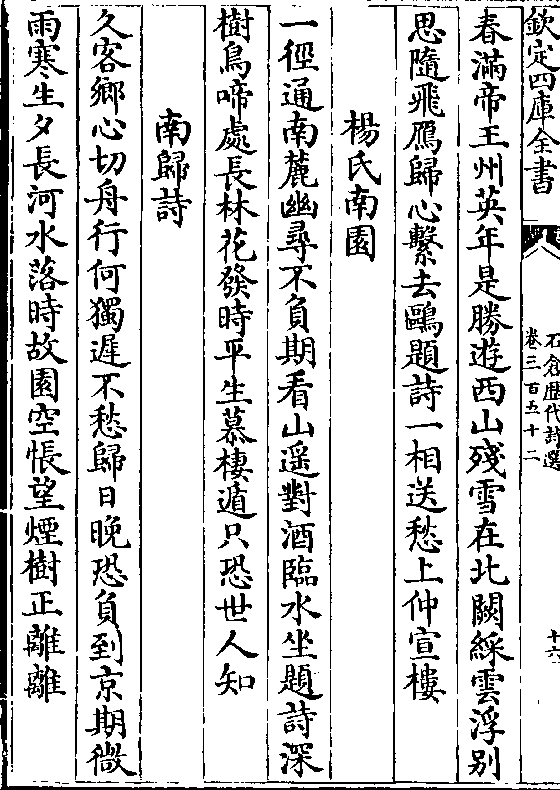 欽定四庫全書
石倉歷代詩選
卷三百五十二
十六
春滿帝王州英年是勝遊西山殘雪在北闕綵雲浮别
思隨飛鴈歸心繫去鷗題詩一相送愁上仲宣樓
楊氏南園
一徑通南麓幽尋不負期看山遥對酒臨水坐題詩深
樹鳥啼處長林花發時平生慕棲遁只恐世人知
南歸詩
久客鄉心切舟行何獨遲不愁歸日晚恐負到京期微
雨寒生夕長河水落時故園空悵望煙樹正離離